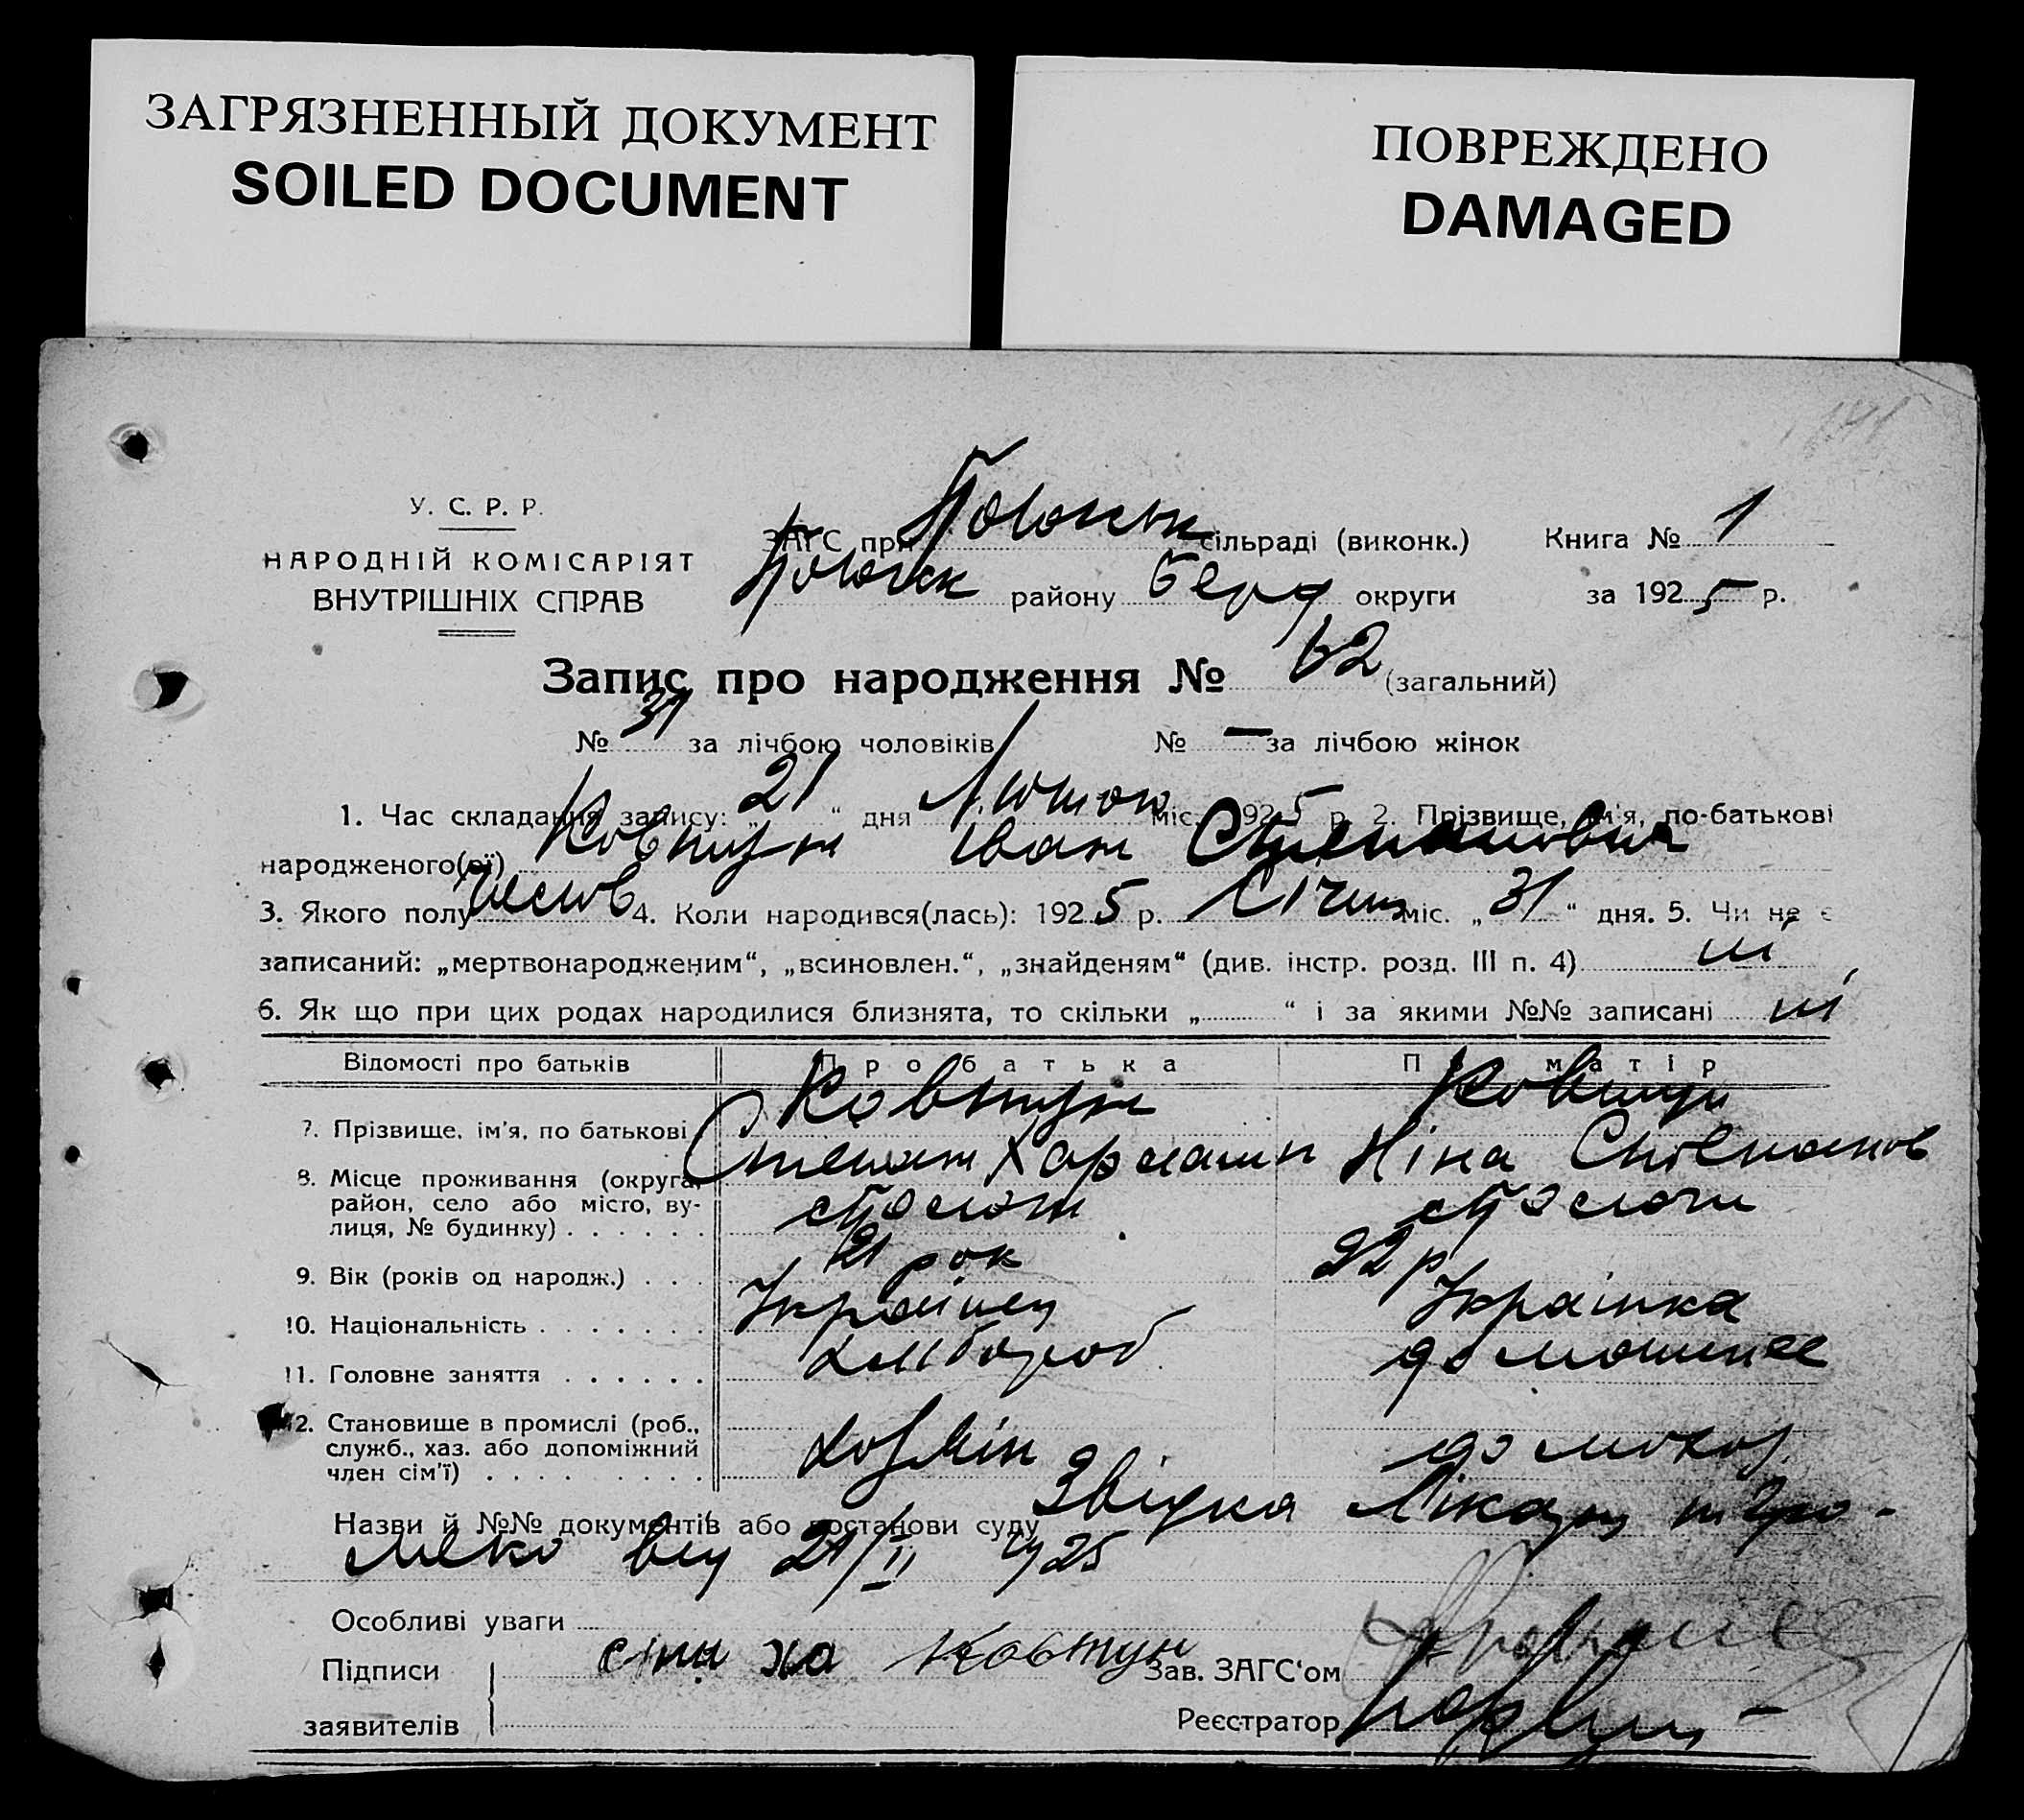 ЗАГРЯЗНЕННЫЙ ДОКУМЕНТ
SOILED DOCUMENT
ПОВРЕЖДЕНО
DAMAGED
У. С. Р. Р.
НАРОДНІЙ КОМІСАРІЯТ
ВНУТРІШНІХ СПРАВ
ЗАГС при сільраді (виконк.) Книга № 1
району Берд округи за 1925 р.
Запис про народження № 62 (загальний)
№ 31 за лічбою чоловіків № — за лічбою жінок
1. Час складання запису: „ 21 “ дня Люток міс. 1925 р. 2. Прізвище, ім'я, по-батькові
народженого(ої) Ковтун Іван Степанович
3. Якого полу 4. Коли народився(лась): 1925 р. Січень міс. „ 31 “ дня. 5. Чи не є
записаний: „мертвонародженим“, „всиновлен.“, „знайденям“ (див. інстр. розд. III п. 4) ні
6. Як що при цих родах народилися близнята, то скільки „ “ і за якими №№ записані ні
Відомості про батьків Про батька Про матір
7. Прізвище, ім'я, по батькові Ковтун Степан Харламп Ковтун Ніна Степанов
8. Місце проживання (округа,
район, село або місто, ву-
лиця, № будинку)
9. Вік (років од народж.) 21 рок 22 р
10. Національність Українец Українка
11. Головне заняття Хлібороб домашнее
12. Становище в промислі (роб.,
служб., хаз. або допоміжний
член сім'ї)
Назви й №№ документів або постанови суду Звідка
від 21/II 25
Особливі уваги
Підписи Ковтун Зав. ЗАГС'ом
заявителів Реєстратор